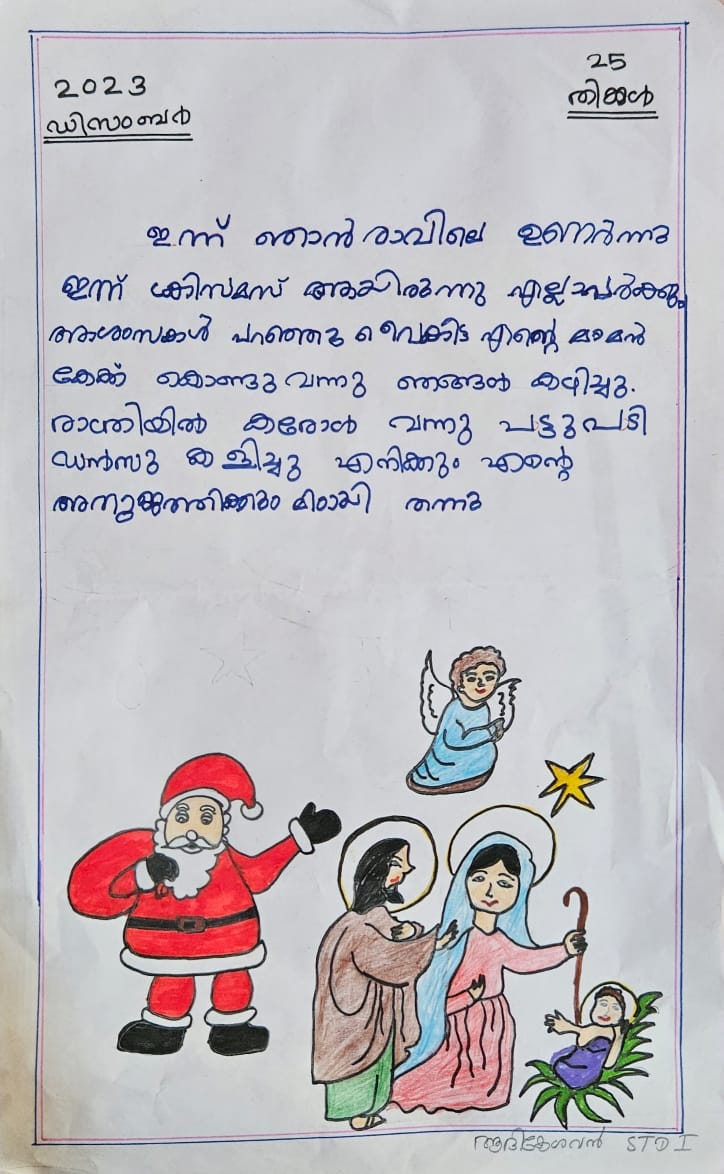 2023
ഡിസംബർ
25
തിങ്കൾ
ഇന്ന് ഞാൻ രാവിലെ ഉണെർന്നു
ഇന്ന് ക്രിസമസ് ആയിരുന്നു എല്ലാപ്പേർക്കും
ആശംസകൾ പറഞ്ഞു വൈകിട്ട എൻ്റെ മാമൻ
കേക്ക് കൊണ്ടു വന്നു ഞങ്ങൾ കഴിച്ചു.
രാത്രിയിൽ കരോൾ വന്നു പട്ടുപടി
ഡൻസു കളിച്ചു എനിക്കും എൻ്റെ
അനുജത്തിക്കും മിഠായി തന്നു
ആദികേശവൻ STD I